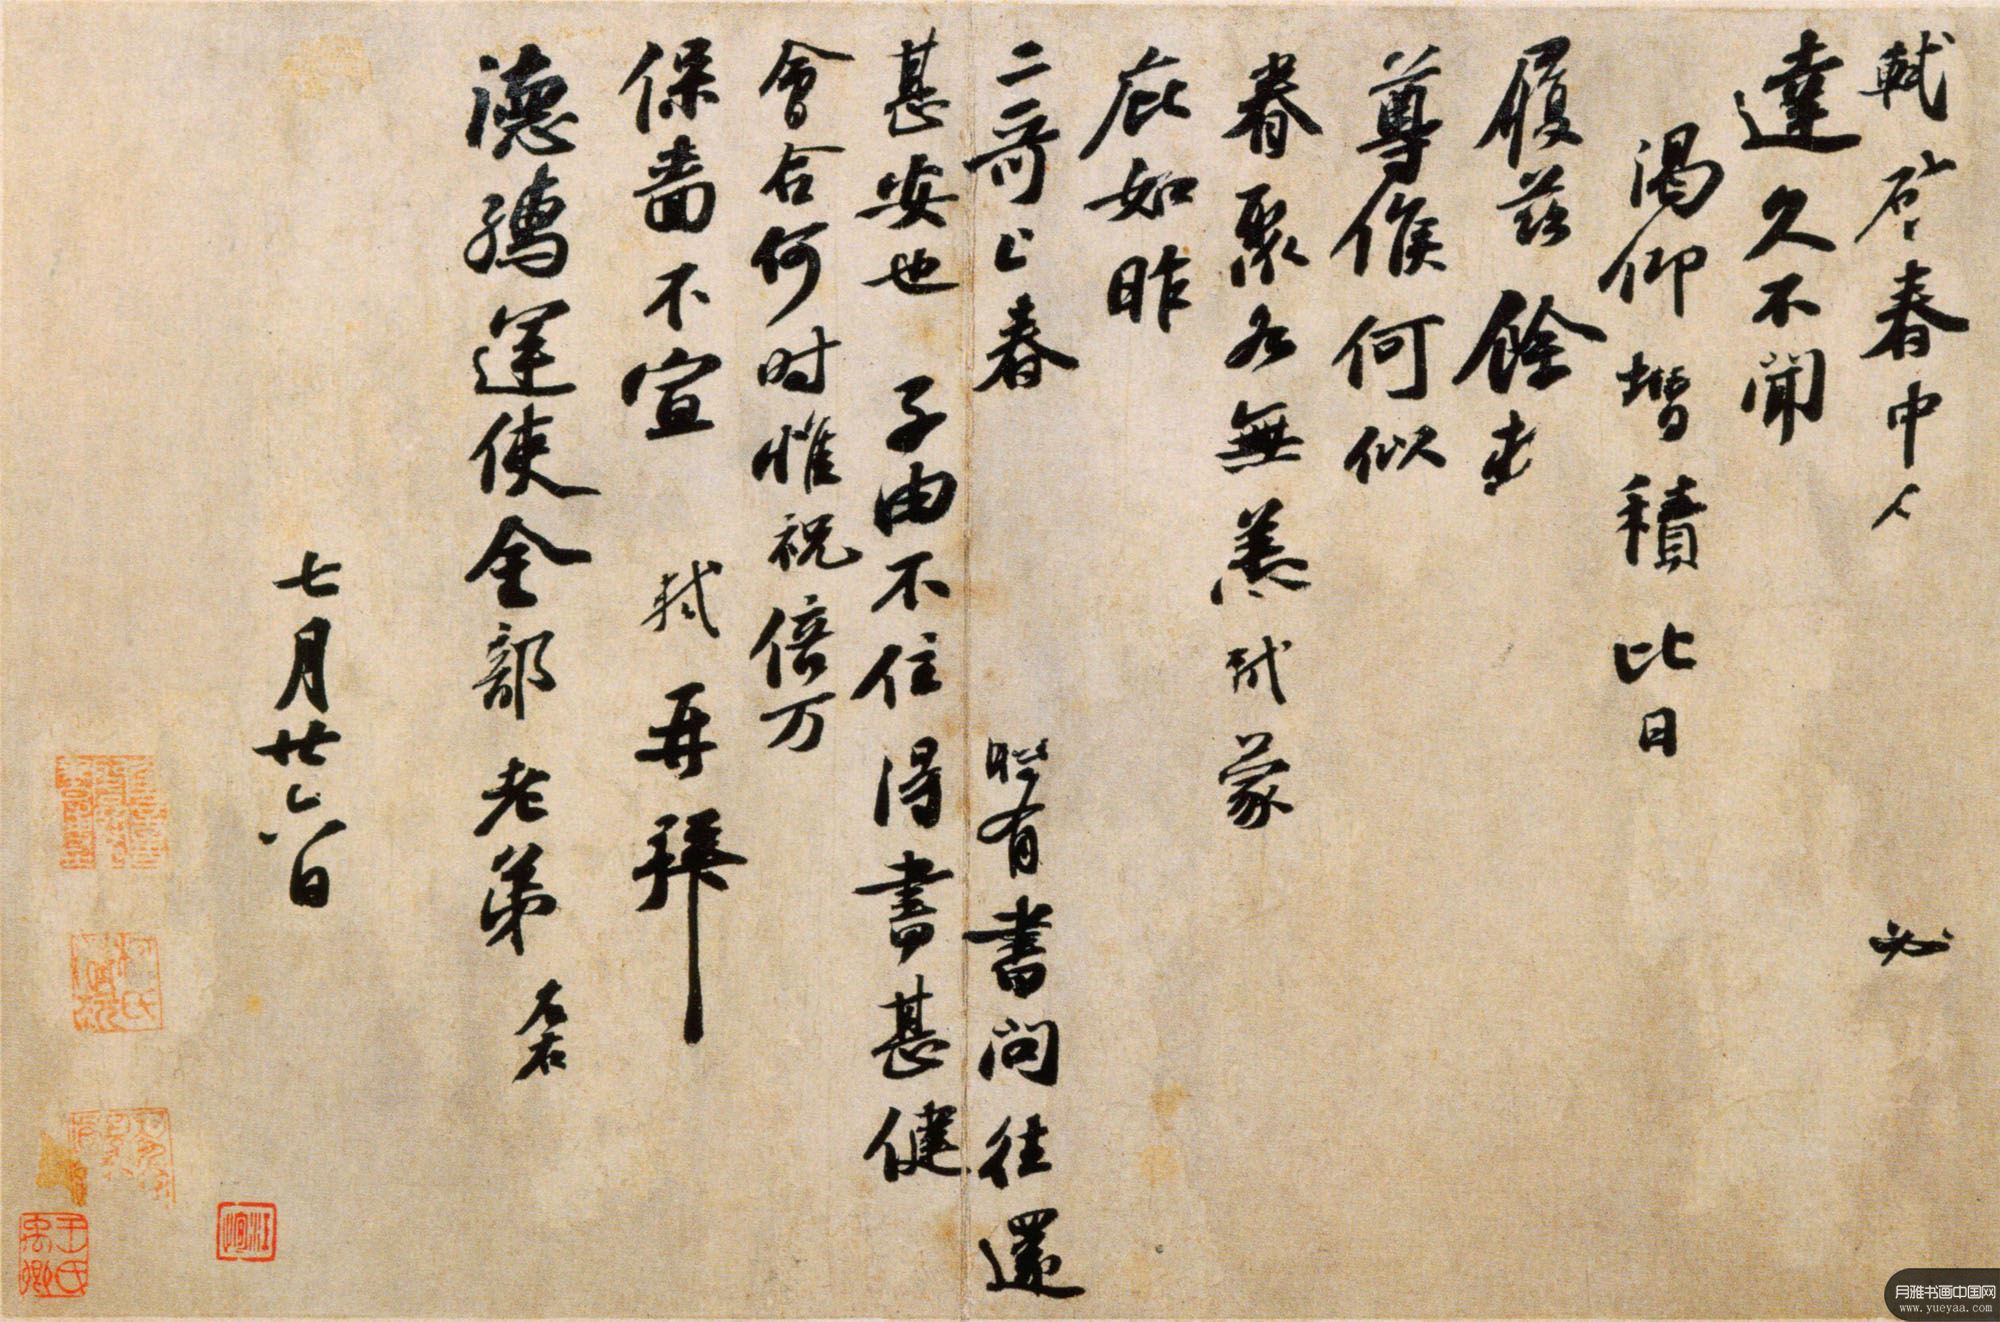 軾啓春中人 必
達久不聞
渴仰增積比日
履茲餘
尊候何似
眷聚各無恙軾蒙
庇如昨
二哥上春 有書問往還
甚安也 子由不住得書甚健
會合何时惟祝倍万
保嗇不宣 軾再拜
德孺運使金部老弟 左右
七月廿六日
江恂
王氏禹卿
月雅书画中国网
www.yueyaa.com